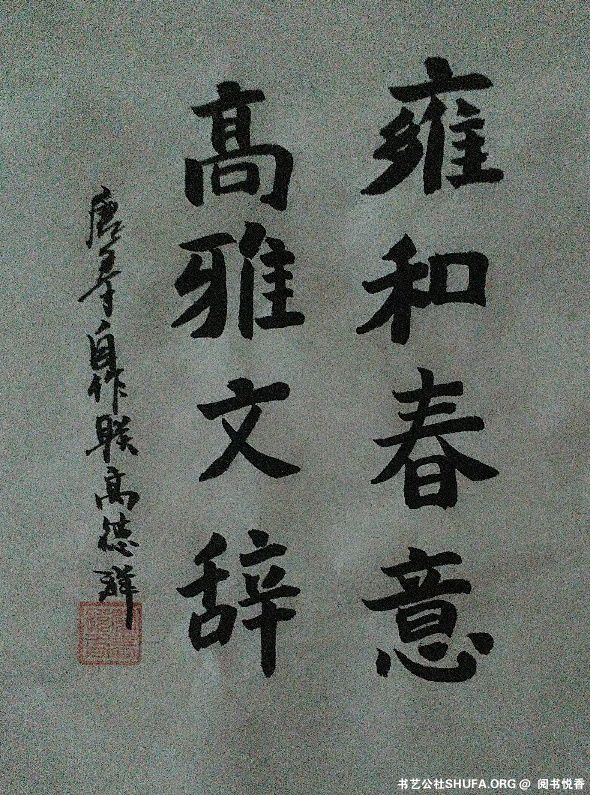 雍和春意
高雅文辞
唐㧑自作联高德祥
书艺公社SHUFA.ORG @ 阅书悦香